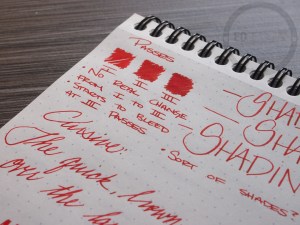 PASSES
I II III
• NO REAL CHANGE
FROM I TO III
• STARTS TO BLEED
AT III PASSES
SHADIN
• SORT OF SHADES?
Cursive:
The quick, brown
over the